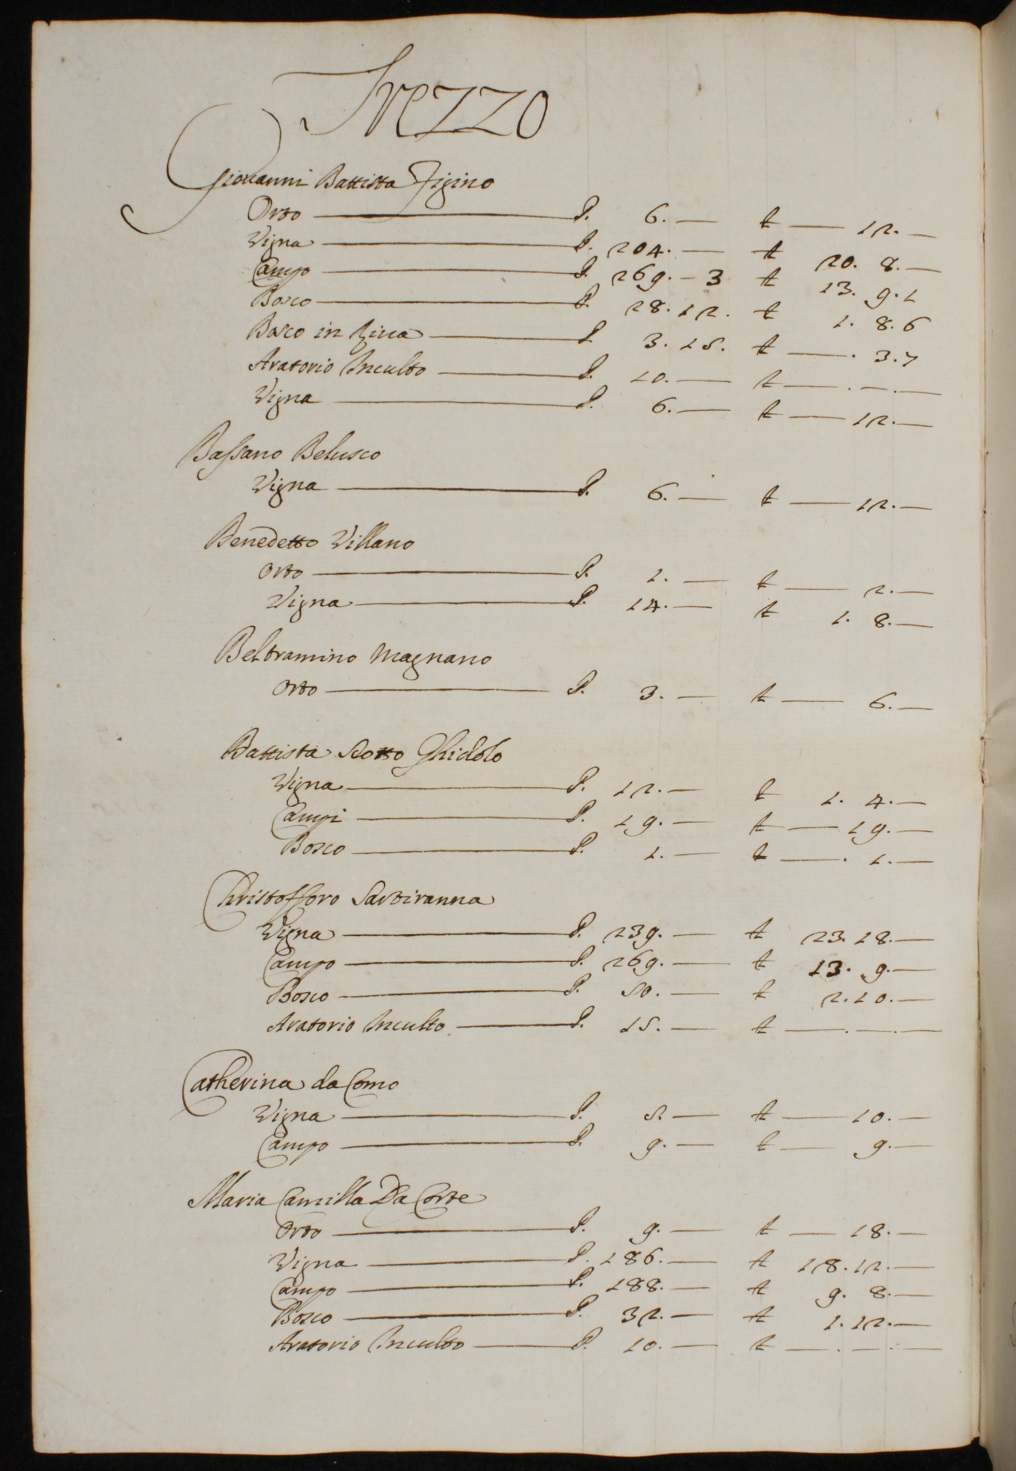 Trezzo
Giovanni Battista Figino
Orto — P. 6. — £ — 12. —
Vigna — P. 204. — £ 20. 8. —
Campo — P. 269. — 3 £ 13. 9. 1
Bosco — P. 28. 12. £ 1. 8. 6
Bosco in — P. 3. 15. £ — . 3. 7
Aratorio Inculto — P. 10. — £ — . — . —
Vigna — P. 6. — £ — 12. —
Bassano Belusco
Vigna — P. 6. — £ — 12. —
Benedetto Villano
Orto — P. 1. — £ — 2. —
Vigna — P. 14. — £ 1. 8. —
Beltramino Magnano
Orto — P. 3. — £ — 6. —
Battista Rotto Ghidolo
Vigna — P. 12. — £ 1. 4. —
Campi — P. 19. — £ — 19. —
Bosco — P. 1. — £ — . 1. —
Christofforo Sartiranna
Vigna — P. 239. — £ 23. 18. —
Campo — P. 269. — £ 13. 9. —
Bosco — P. 50. — £ 2. 10. —
Aratorio Inculto — P. 15. — £ — . — . —
Catherina da Como
Vigna — P. 5. — £ — 10. —
Campo — P. 9. — £ — 9. —
Maria Camilla Da Corte
Orto — P. 9. — £ — 18. —
Vigna — P. 186. — £ 18. 12. —
Campo — P. 188. — £ 9. 8. —
Bosco — P. 32. — £ 1. 12. —
Aratorio Inculto — P. 10. — £ — . — . —